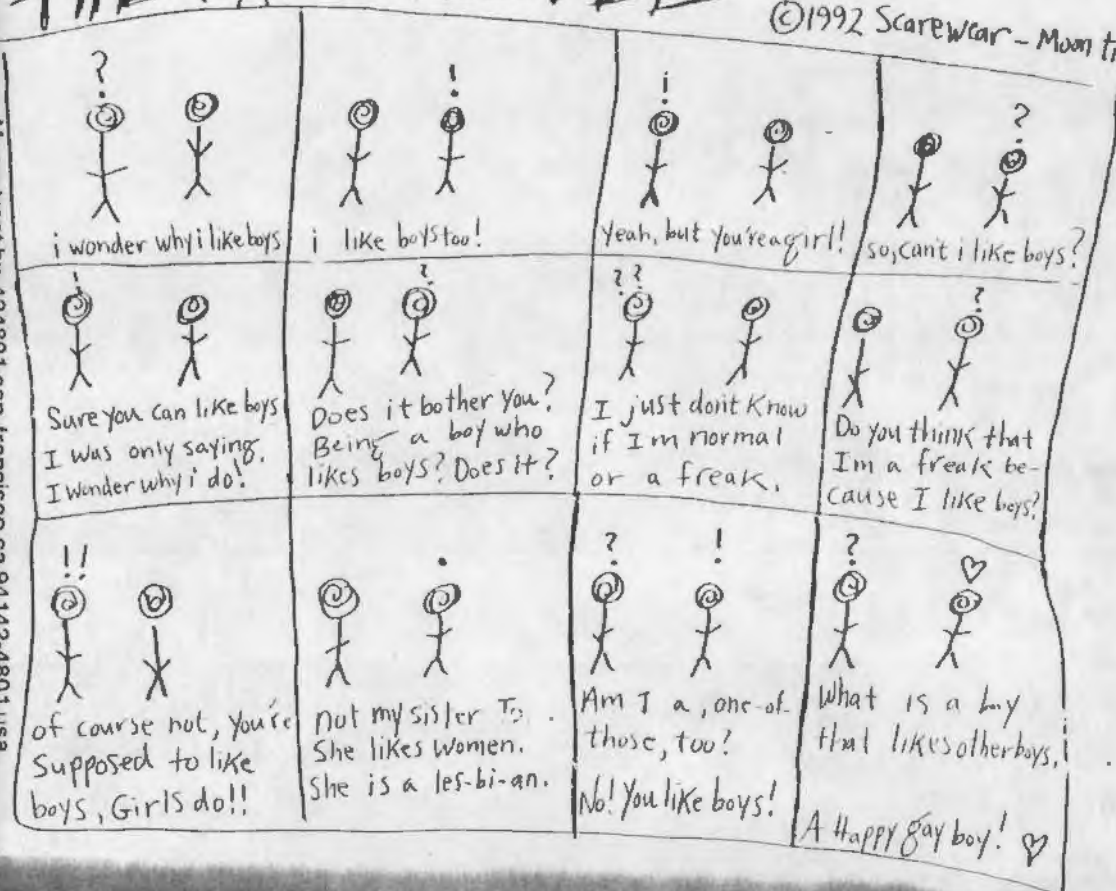 ©1992 Scarewear - Moon
i wonder why i like boys
i like boys too!
Yeah, but you're a girl!
so, can't i like boys?
Sure you can like boys
I was only saying.
I wonder why i do!
Does it bother you?
Being a boy who
likes boys? Does it?
I just don't know
if I'm normal
or a freak.
Do you think that
I'm a freak be-
cause I like boys?
of course not, you're
supposed to like
boys, Girls do!!
not my sister
She likes women.
She is a les-bi-an.
Am I a, one-of-
those, too?
No! You like boys!
What is a boy
that likes other boys,
A Happy gay boy! ♡